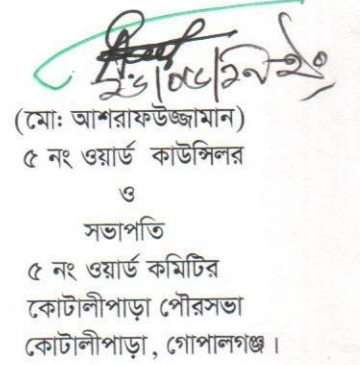 (মো: আশরাফউজ্জামান)
৫ নং ওয়ার্ড কাউন্সিলর
ও
সভাপতি
৫ নং ওয়ার্ড কমিটির
কোটালীপাড়া পৌরসভা
কোটালীপাড়া, গোপালগঞ্জ।